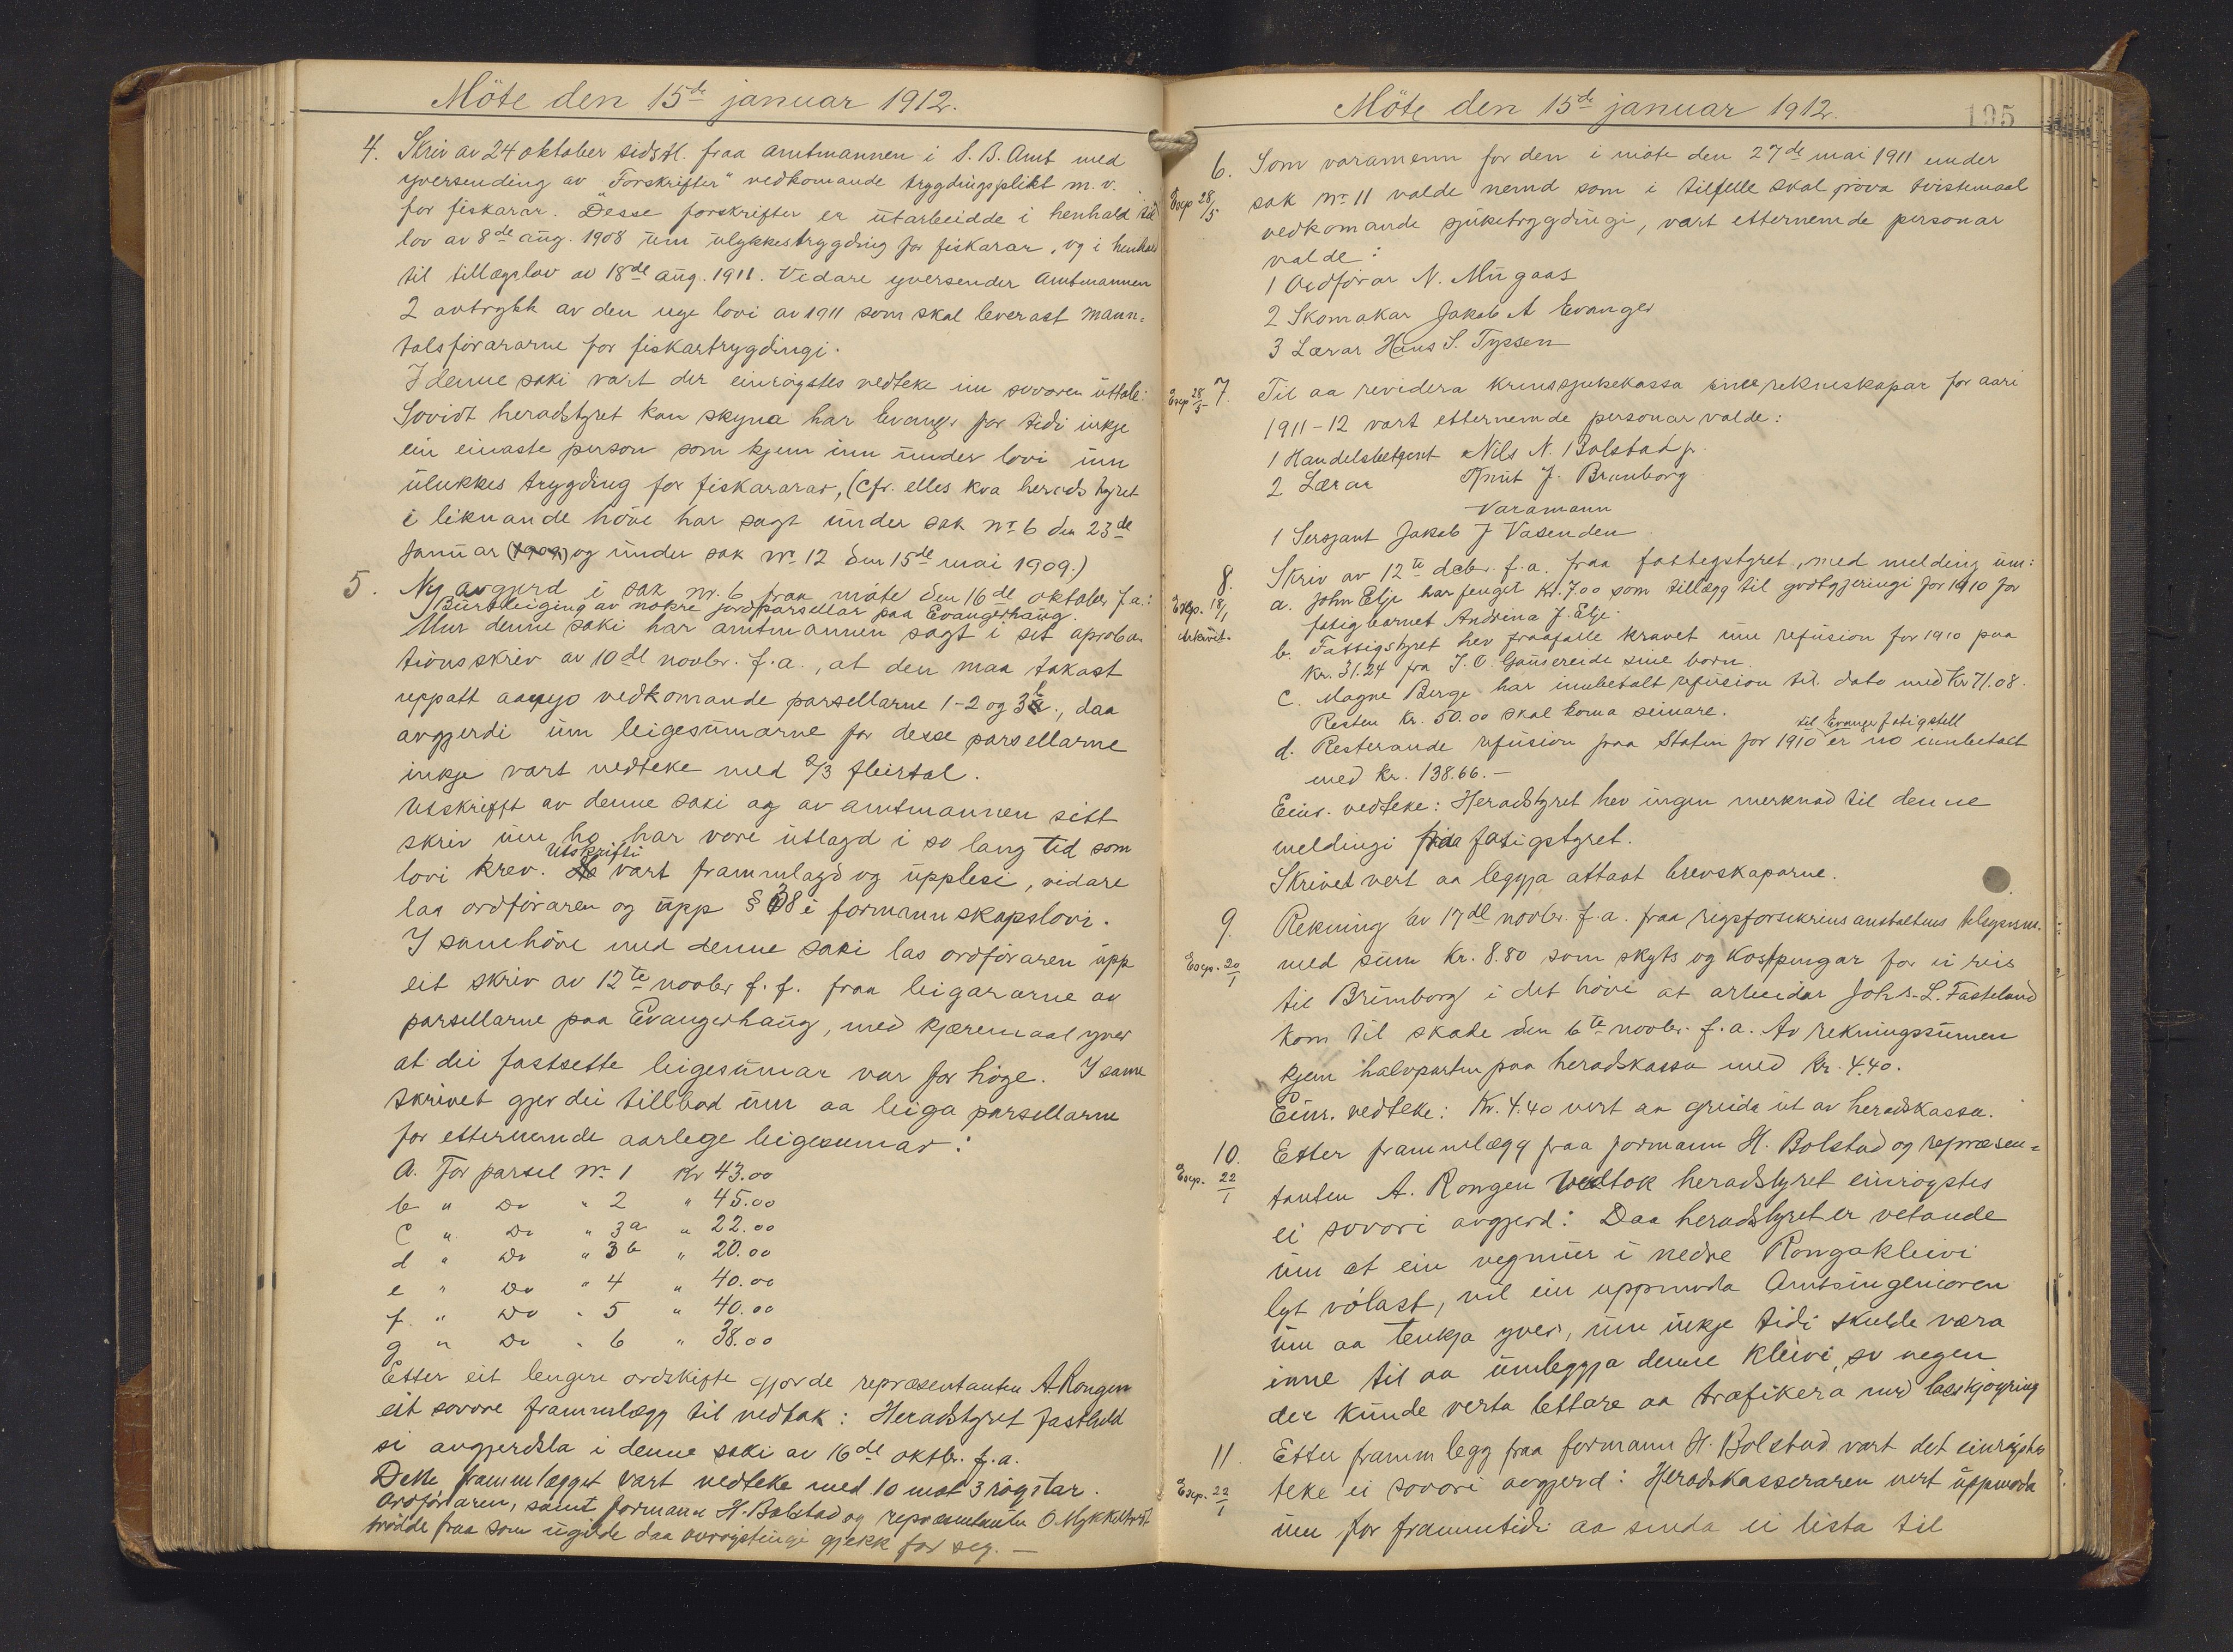 Möte den 15de januar 1912.
4. Skriv av 24 oktober sidstl. fraa amtmannen i S. B. Amt med
yversending av "Forskrifter" vedkomande trygdingsplikt m. v.
for fiskarar. Desse forskrifter er utarbeidde i henhald til
lov av 8de aug. 1908 um ulykkestrygding for fiskarar, og i henhald
til tillægslov av 18de aug. 1911. Vidare yversender Amtmannen
2 avtrykk av den nye lovi av 1911 som skal leverast mann=
talsförararne for fiskartrygdingi.
I denne saki vart der einröystes vedteke ein sovoren uttale:
Sovidt heradstyret kan skyna har Evanger for tidi inkje
ein einaste person som kjem inn under lovi um
ulukkes trygding for fiskararar, (Cfr. elles kva heradstyret
i liknande höve har sagt under sak nr. 6 den 23de
Januar (1909) og under sak nr. 12 den 15de mai 1909.)
5. Ny avgjerd i sak nr. 6 fraa möte den 16de oktober f.a.:
Burtleiging av nokre jordparsellar paa Evangerhaug.
Um denne saki har amtmannen sagt i sit aproba-
tionsskriv av 10de novbr. f.a., at den maa takast
uppatt aanyo vedkomande parsellarne 1-2 og 3b., daa
avgjerdi um leigesumarne for desse parsellarne
inkje vart vedteke med 2/3 fleirtal.
Utskrift av denne saki og av amtmannen sitt
skriv um ho har vore utlagd i so lang tid som
lovi krev. Utskrifti vart frammlagd og upplesi, vidare
las ordföraren og upp § 38 i formannskapslovi.
I samhöve med denne saki las ordföraren upp
eit skriv av 12te novbr f. f. fraa leigararne av
parsellarne paa Evangerhaug, med kjæremaal yver
at dei fastsette leigesumar var for höge. I same
skrivet gjer dei tillbod um aa leiga parsellarne
for etternemnde aarlege leigesumar:
A. For parsel nr. 1 Kr 43.00
b " Do " 2 " 45.00
C " Do " 3a " 22.00
d " Do " 3b " 20.00
e " Do " 4 " 40.00
f. " Do " 5 " 40.00
g " Do " 6 " 38.00
Etter eit lengere ordskifte gjorde repræsentanten A. Rongen
eit sovore frammlægg til vedtak: Heradstyret fastheld
si avgjerdsla i denne saki av 16de oktbr. f.a.
Dette frammlægget vart vedteke med 10 mot 3 röystar.
Ordföraren, samt formann H. Bolstad og repræsentanten O Mykkeltvet
trødde fraa som ugilde daa avröystingi gjekk for seg. —
Möte den 15de januar 1912.
195
6. Som varamenn for den i möte den 27de mai 1911 under
Exp 28/5 sak nr. 11 valde nemnd som i tilfelle skal pröva tvistemaal
vedkomande sjuketrygdingi, vart etternemde personar
valde:
1 Ordförar N. Mugaas
2 Skomakar Jakob A Evanger
3 Lærar Hans S. Tyssen
Exp 28/5 7. Til aa revidera krinssjukekassa sine rekneskapar for aari
1911-12 vart etternemde personar valde:
1 Handelsbetjent Nils N. Bolstad jr.
2 Lærar Knut J. Brunborg
Varamann
1 Sersjant Jakob J Vasenden
8. Skriv av 12te decbr. f.a. fraa fattigstyret, med melding um:
Exp. 18/1 a. John Elje har fenget Kr. 7.00 som tillægg til godtgjeringi for 1910 for
fatigbarnet Andrina J. Elje
b. Fattigstyret hev fraafalle kravet um refusion for 1910 paa
Kr. 31.24 fra J. O. Gausereide sine born.
C. Magne Berge har innbetalt refusion til dato med Kr 71.08.
Resten Kr. 50.00 skal koma seinare.
d. Resterande refusion fraa Staten for 1910 til Evanger fatigstell er no innbetalt
med Kr. 138.66.—
Einr. vedteke: Heradstyret hev ingen merknad til denne
meldingi fraa fatigstyret.
Skrivet vert aa leggja attaat brevskaparne.
9. Rekning av 17de novbr. f.a. fraa rigsforsikrings anstaltens tilsynsm.
Exp. 20/1 med sum Kr. 8.80 som skyts og kostpengar for ei reis
til Brunborg i det höve at arbeidar Johs. L. Fasteland
kom til skade den 6te novbr. f.a. Av rekningssumen
kjem halvparten paa heradskassa med Kr. 4.40.
Einr. vedteke: Kr. 4.40 vert aa greida ut av heradskassa.
10. Etter frammlægg fraa formann H. Bolstad og repræsen=
Exp. 22/1 tanten A. Rongen vedtok heradstyret einröystes
ei sovori avgjerd: Daa heradstyret er vetande
um at ein vegmur i nedre Rongakleivi
lyt völast, vil ein uppmoda Amtsingeniören
um aa tenkja yver, um inkje tidi skulde vera
inne til aa umleggja denne kleivi, so vegen
der kunde verta lettare aa trafikera med lasskjöyring
11. Etter frammlegg fraa formann H. Bolstad vart det einröystes
Exp. 22/1 teke ei sovori avgjerd: Heradskasseraren vert uppmoda
um for frammtidi aa senda ei lista til